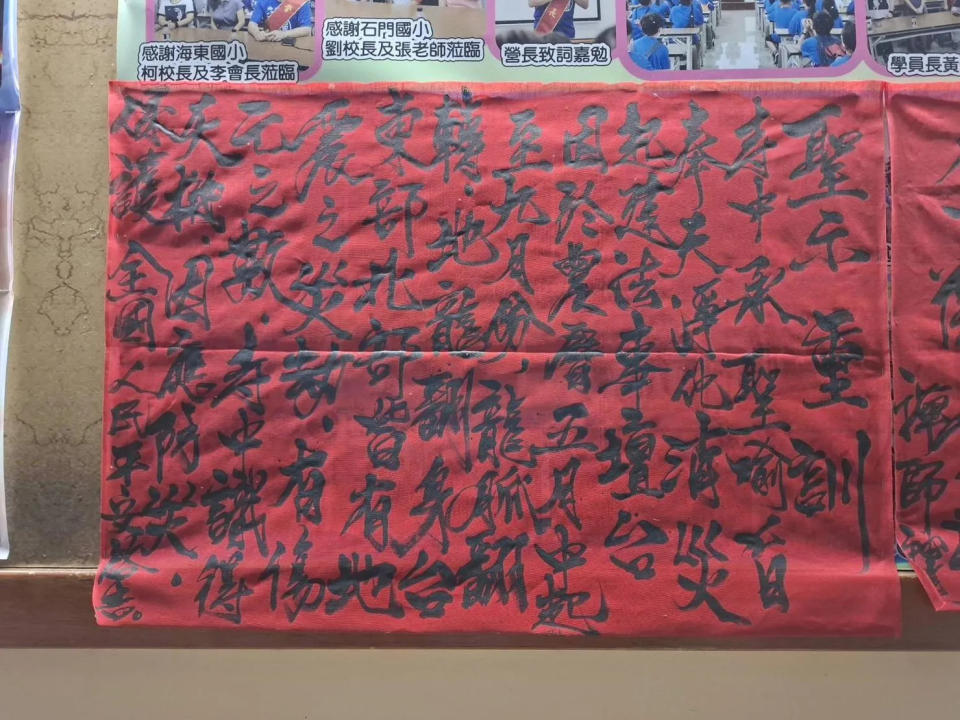 感謝海東國小
柯校長及李會長蒞臨
感謝石門國小
劉校長及張老師蒞臨
營長致詞嘉勉
學員長黃
聖示重訓
寺中承聖喻旨
奉天淨化消災
起建法事壇台
因於農曆五月中起
至九月份,龍脈翻
轉,地龍翻身台
東部北部皆有地
震之災劫,有傷
元之數,寺中識得
天機,因應防災,
保護全國人民平安
禪師